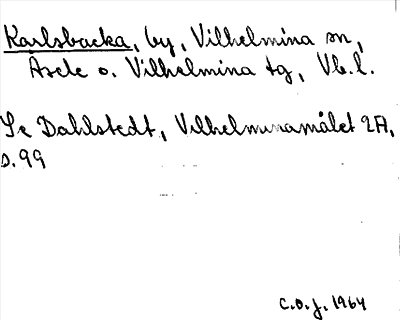 Karlsbacka, by, Vilhelmina sn,
Åsele o. Vilhelmina tg, Vb. l.
Se Dahlstedt, Vilhelminamålet 2A,
s. 99
C.O.J. 1964